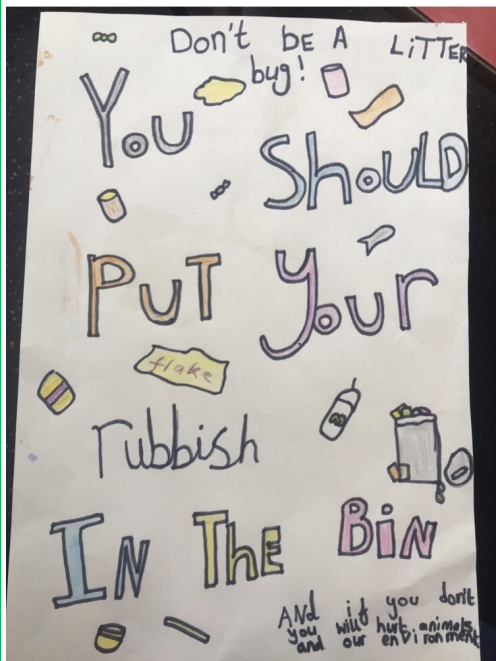 Don't bE A LiTTER
bug!
You
ShoULD
PuT Your
flake
rubbish
IN ThE BiN
ANd if you don't
you will hurt animals
and our environment